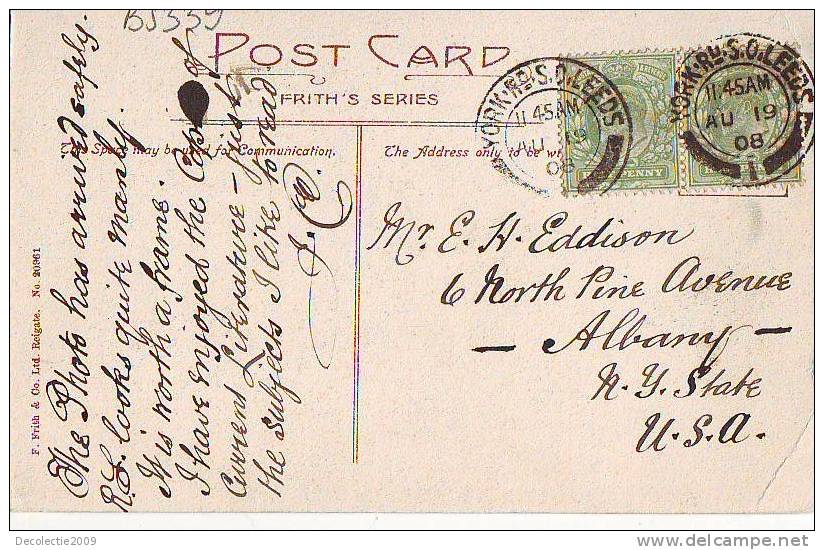 BS339
POST CARD
FRITH'S SERIES
This Space may be used for Communication.
The Address only to be
F. Frith & Co. Ltd. Reigate. No. 20961
The Photo has arrived safely.
R.L. looks quite manly.
It is worth a frame.
I have enjoyed the of
Current Literature - just
the subjects I like to read
YORK.RD.S.O.LEEDS
11.45AM
AU 19
08
PENNY
YORK.RD.S.O.LEEDS
11.45AM
AU 19
08
1
Mr. E. H. Eddison
6 North Pine Avenue
- Albany -
N.Y. State
U.S.A.
Decolectie2009
delcampe.net